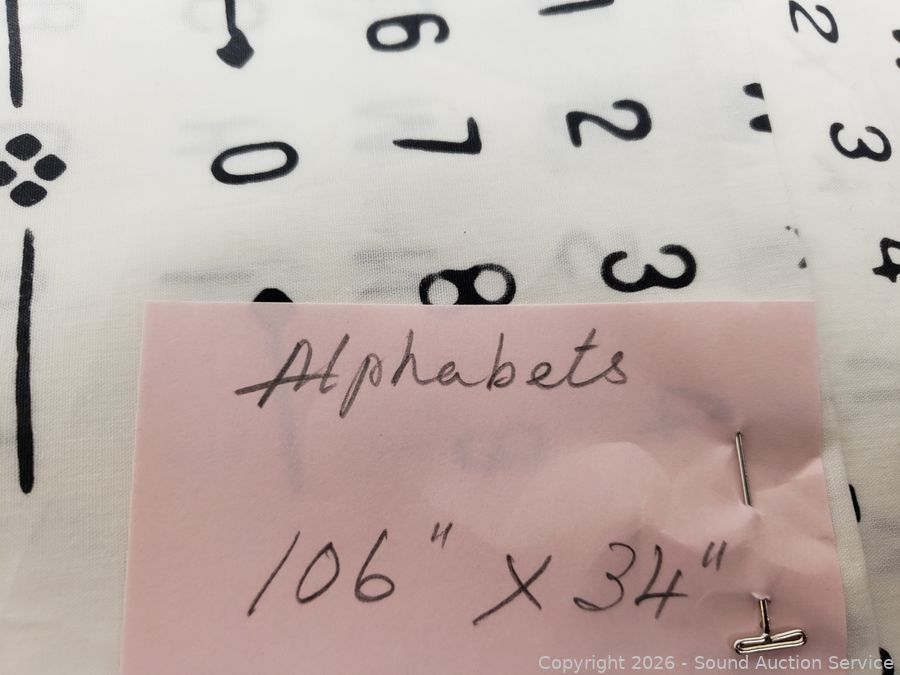 6
1
2
0
7
2
3
8
3
4
Alphabets
106" X 34"
Copyright 2026 - Sound Auction Service